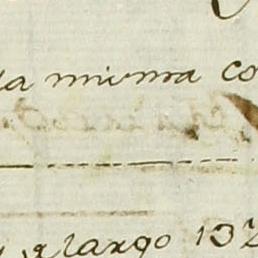 la misma co
y largo 132